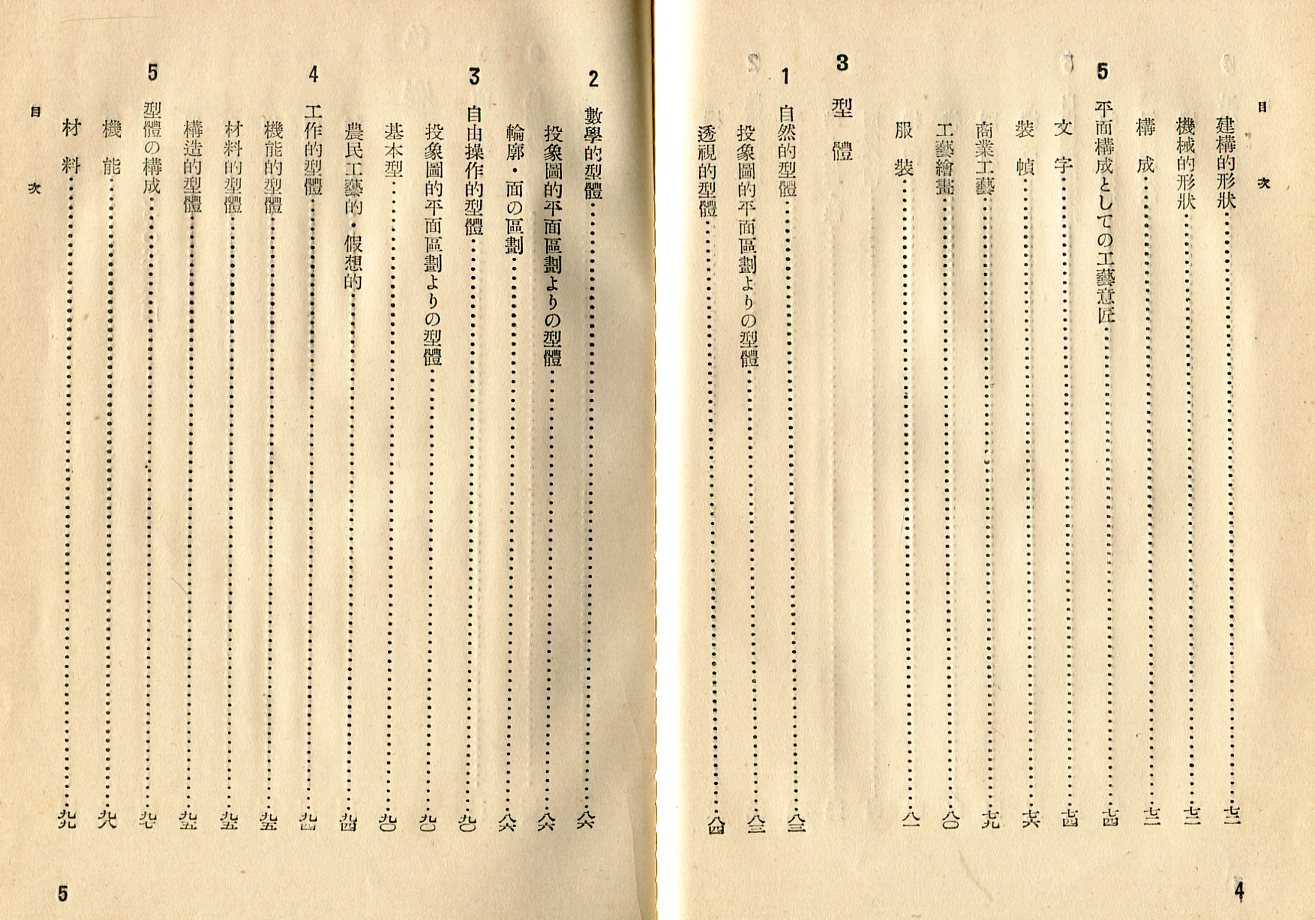 目次
建構的形狀……七二
機械的形狀……七二
構成……七二
5 平面構成としての工藝意匠……七四
文字……七四
裝幀……七六
商業工藝……七九
工藝繪畫……八〇
服裝……八一
3 型體
1 自然的型體……八三
投象圖的平面區劃よりの型體……八三
透視的型體……八四
4
2 數學的型體……八六
投象圖的平面區劃よりの型體……八六
輪廓・面の區劃……八六
3 自由操作的型體……九〇
投象圖的平面區劃よりの型體……九〇
基本型……九〇
農民工藝的・假想的……九四
4 工作的型體……九四
機能的型體……九五
材料的型體……九五
構造的型體……九五
5 型體の構成……九七
機能……九八
材料……九九
目次
5